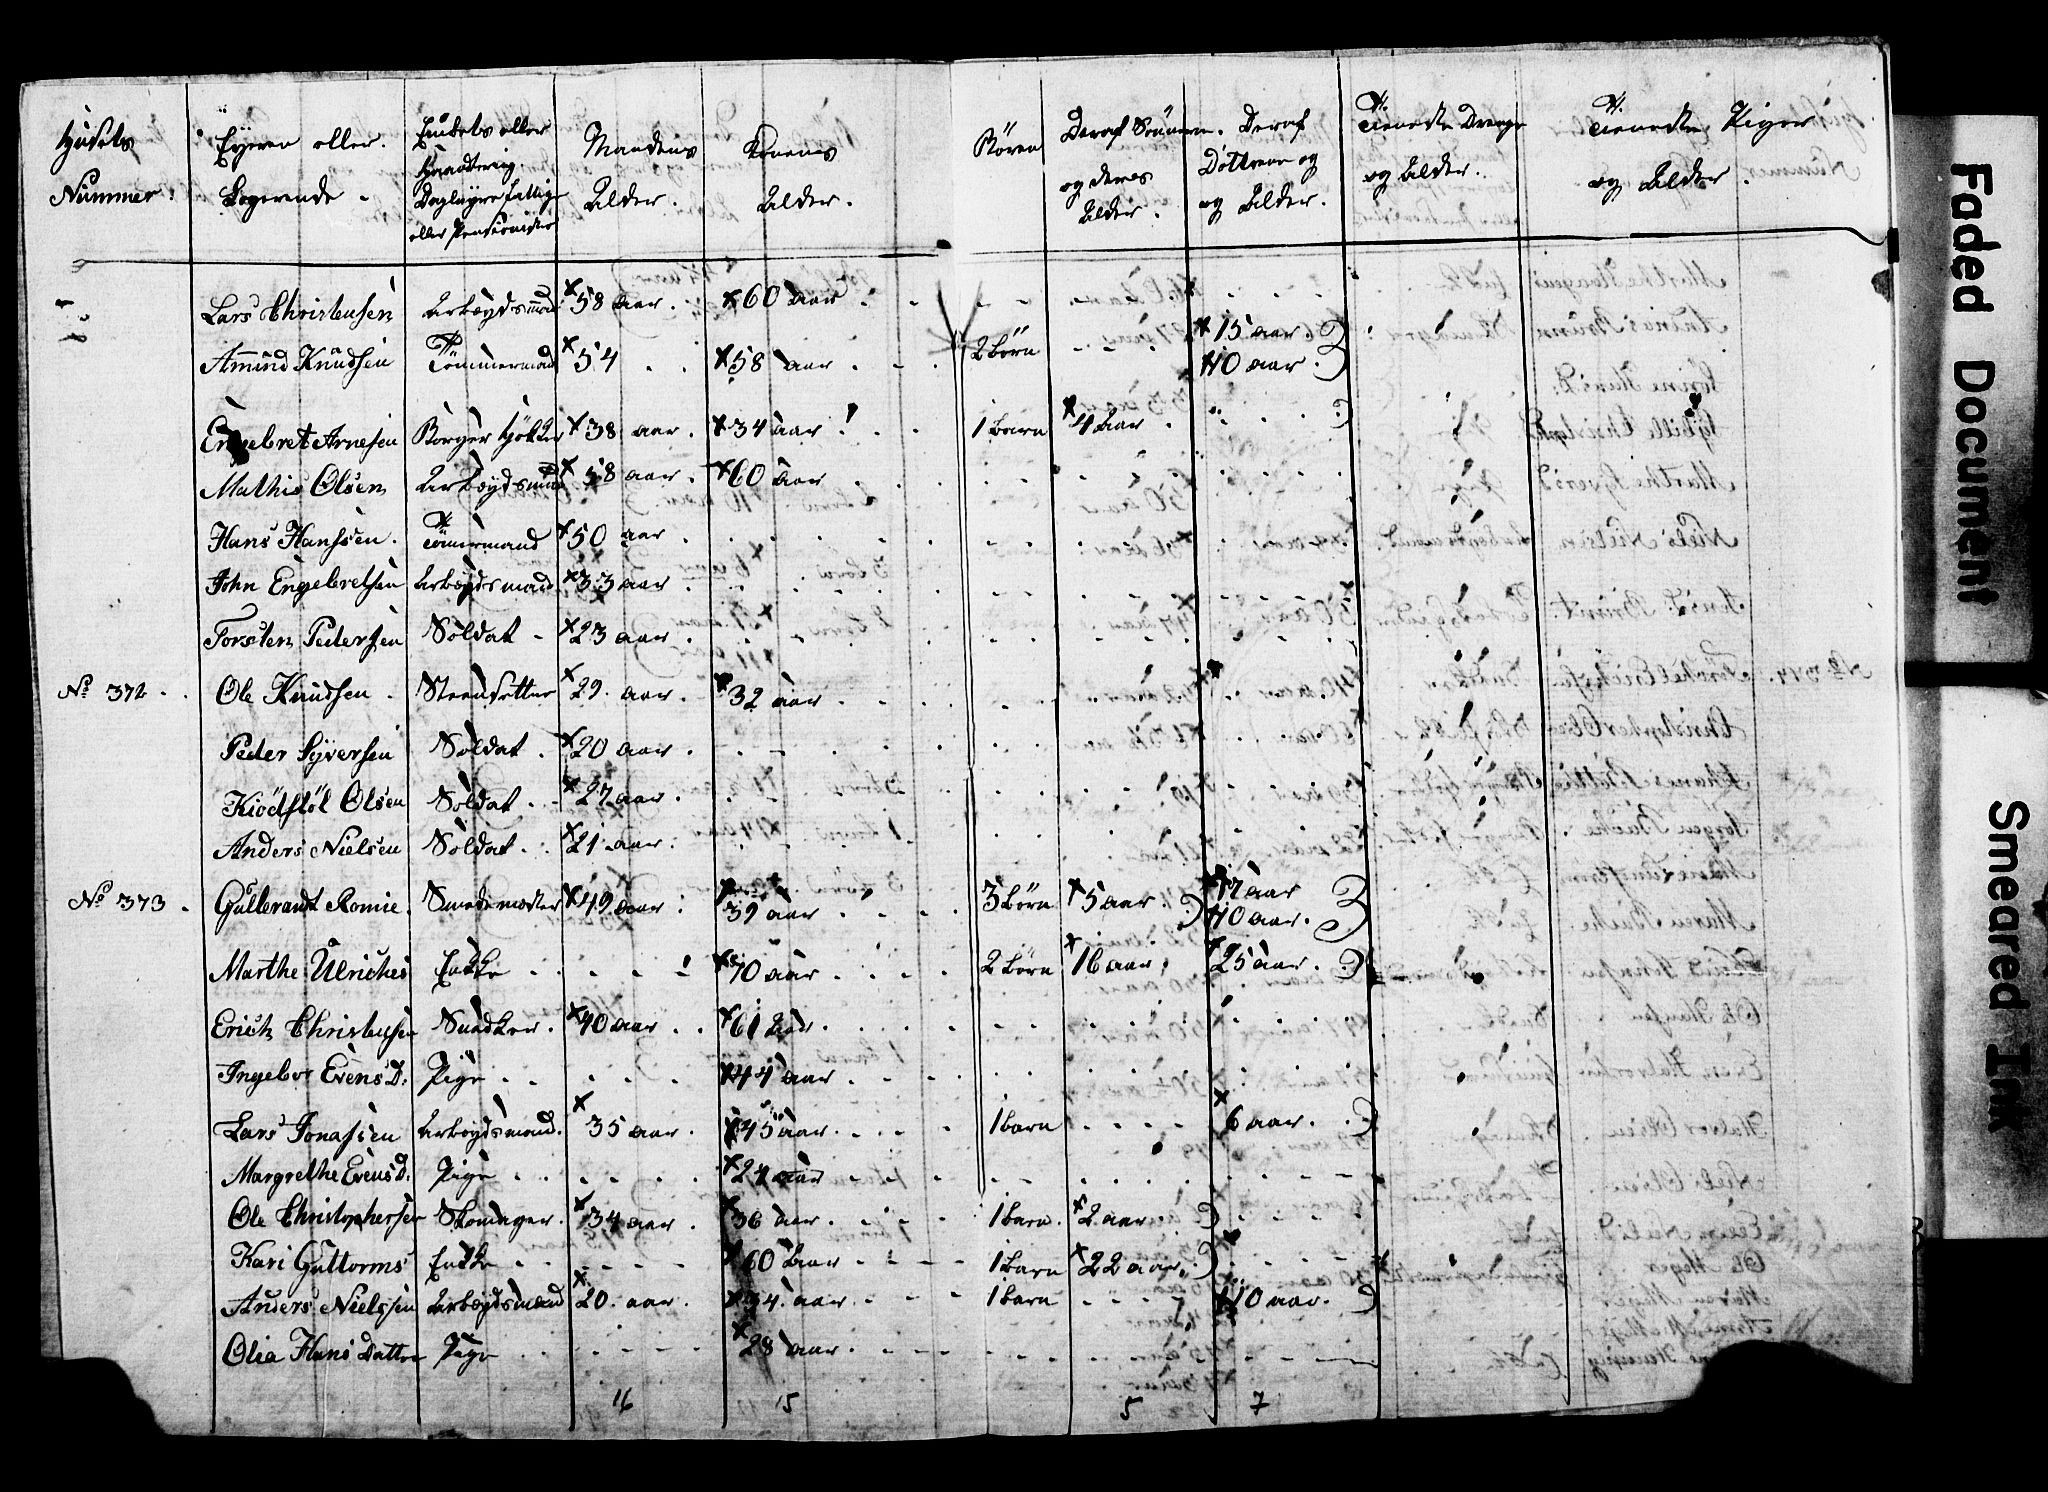 Husets Nummer. Eyeren eller Logerende. Enkets eller Handtering. Dagleyere fattige eller Pensionister Mandens Alder. Konens Alder. Børen Deraf Sönnern. og deres Alder. Deraf Döttrene og og Alder. Tieneste Drenge og Alder. Tieneste Piger og Alder.
Lars Christensen Arbeydsmand 58 aar. 60 aar
Amund Knudsen Tömmermand 54 58 aar 2 börn 15 aar. 10 aar.
Engebret Arnesen Borger Hökker 38 aar. 34 aar 1 barn 4 aar
Mathis Olsen Arbeydsmand 58 aar. 60 aar
Hans Hanssen. Tömermand 50 aar
John Engebretsen Arbeydsmand 33 aar
Torsten Pedersen Soldat 23 aar.
No 372 Ole Knudsen Steensetter 29. aar. 32 aar
Peder Syversen Soldat 20 aar.
Kiödstöl Olsen Soldat 27 aar.
Anders Nielsen Soldat 21 aar.
No 373. Gulbrandt Romie. Smedemester 49 aar 39 aar 3 börn 5 aar 17 aar 10 aar.
Marthe Ulriches Enke 70 aar 2 börn 16 aar 25 aar.
Erich Christensen Snedker. 40 aar 61 aar
Ingebor Evens D. Pige 44 aar
Lars Jonassen Arbeydsmand. 35 aar. 45 aar 1 barn 6 aar.
Margrethe Evens D. Pige 24 aar
Ole Christophersen Skomager. 34 aar. 36 aar. 1 barn. 2 aar
Kari Guttorms Enke 60 aar 1 barn 22 aar.
Anders Nielssen Arbeydsmand 20. aar. 34. aar 1 barn 10 aar.
Olia Hans Datter Pige 28 aar.
16 15 5 7
Faded Document
Smeared Ink